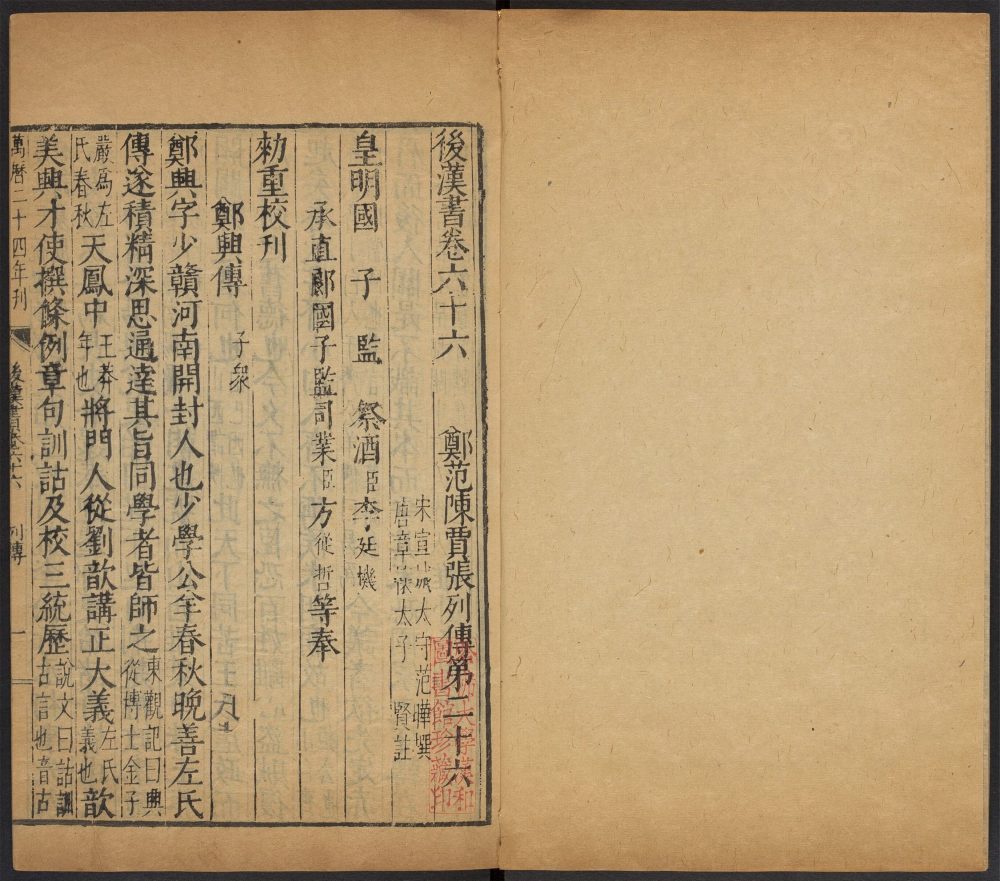 後漢書卷六十六　鄭范陳賈張列傳第二十六
宋宣城太守范曄撰
唐章懷太子賢註
皇明國子監祭酒臣李廷機
承直郎國子監司業臣方從哲等奉
勑重校刊
鄭興傳 子衆
鄭興字少贛河南開封人也少學公羊春秋晚善左氏
傳遂積精深思通達其旨同學者皆師之東觀記曰興從博士金子
嚴爲左氏春秋天鳳中王莽年也將門人從劉歆講正大義左氏義也歆
美興才使撰條例章句訓詁及校三統歷說文曰詁訓古言也音古
萬曆二十四年刊　後漢書卷六十六　列傳　一